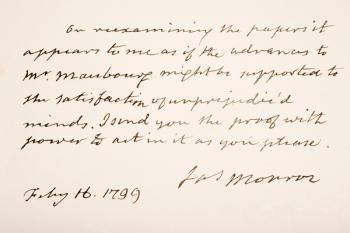 On reexamining the papers it
appears to me as if the advances to
Mr. Maubourg might be supported to
the satisfaction of unprejudic'd
minds. I send you the proof with
power to act in it as you please.
Jas Monroe
Feby 16. 1799